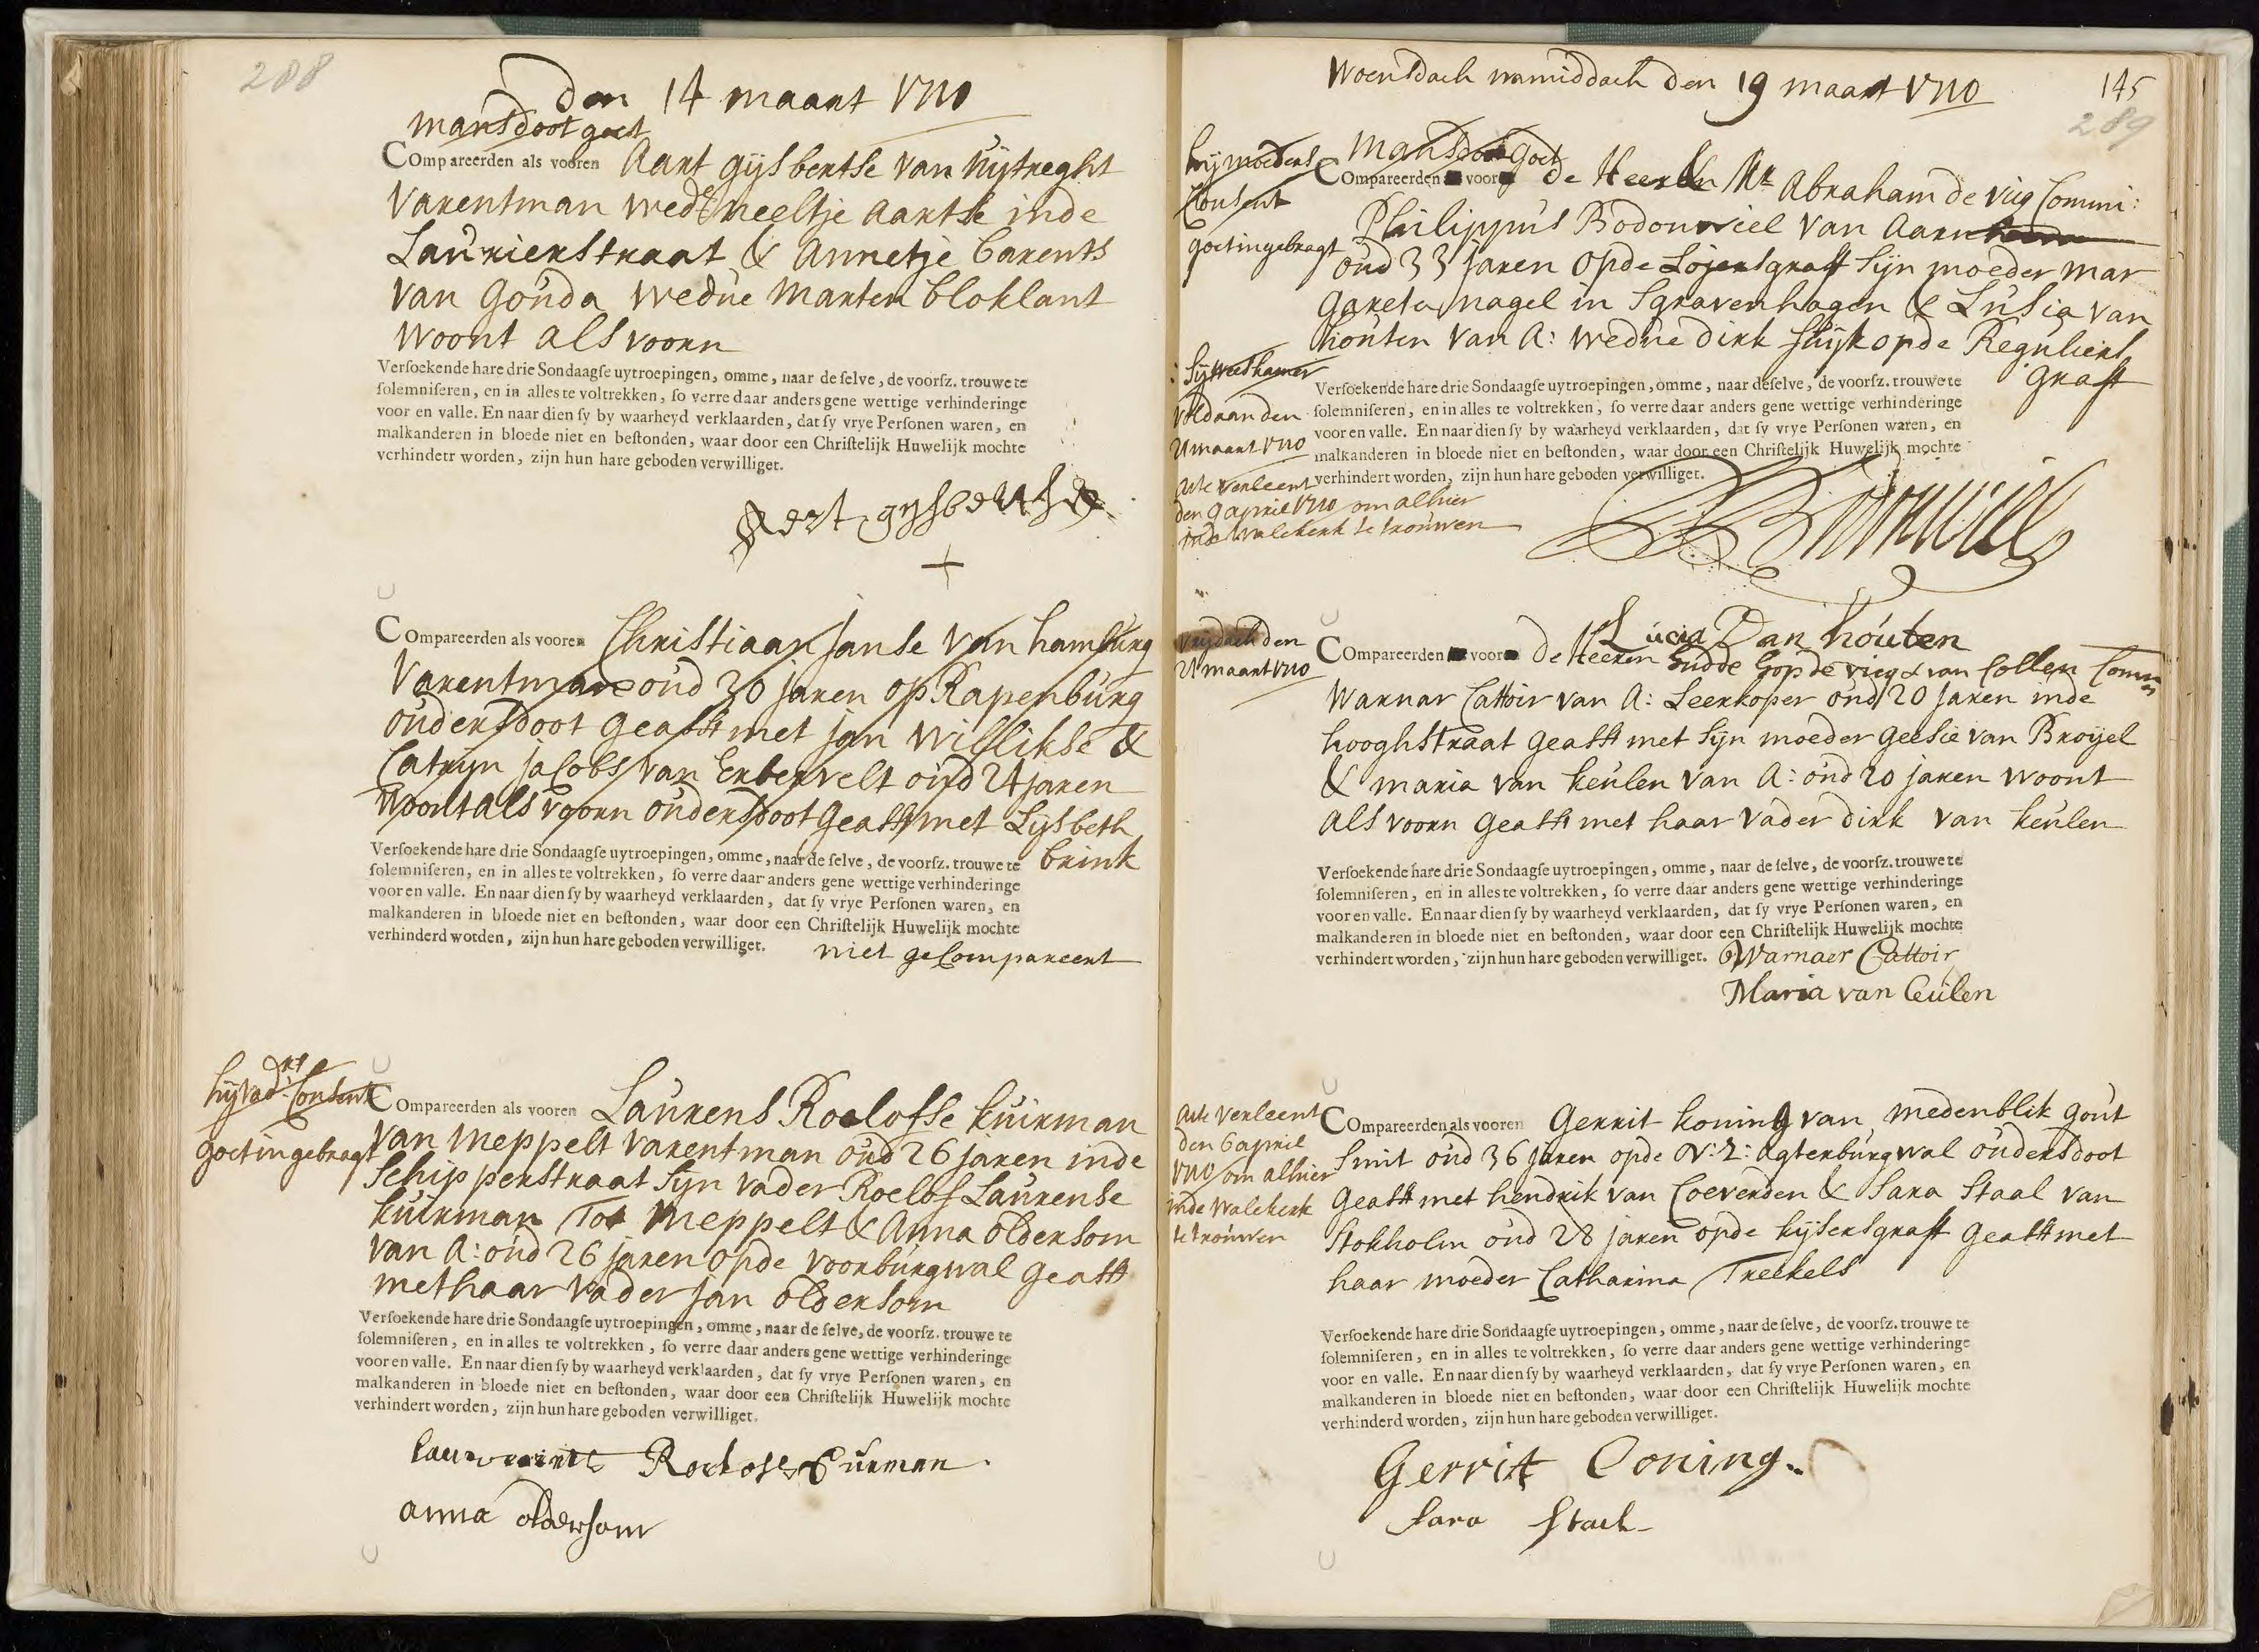 288
Den 14 maart 1710
mansdoot goet
Compareerden als vooren Aart gijsbertse van uijtreght
varentman wedr neeltje aartse inde
Laurierstraat & Annetje barents
van gouda wedue marten bloklant
woont als voorn
Versoekende hare drie Sondaagse uytroepingen, omme, naar de selve, de voorsz. trouwe te
solemniseren, en in alles te voltrekken, so verre daar anders gene wettige verhinderinge
voor en valle. En naar dien sy by waarheyd verklaarden, dat sy vrye Personen waren, en
malkanderen in bloede niet en bestonden, waar door een Christelijk Huwelijk mochte
verhindert worden, zijn hun hare geboden verwilliget.
Aert gijsbertse
+
Compareerden als vooren Christiaan Janse van hamburg
varentman oud 30 jaren op Rapenburg
oudersdoot geastt met jan willikse &
Catryn jacobs van Enbervelt oud 24 jaren
woont als voorn oudersdoot geastt met Lijsbeth
brink
Versoekende hare drie Sondaagse uytroepingen, omme, naar de selve, de voorsz. trouwe te
solemniseren, en in alles te voltrekken, so verre daar anders gene wettige verhinderinge
voor en valle. En naar dien sy by waarheyd verklaarden, dat sy vrye Personen waren, en
malkanderen in bloede niet en bestonden, waar door een Christelijk Huwelijk mochte
verhinderd worden, zijn hun hare geboden verwilliget. niet gecompareert
hij vadrs Consent
goet ingebragt
Compareerden als vooren Laurens Roelofse kuirman
van meppelt varentman oud 26 jaren inde
Schipperstraat Sijn vader Roelof Laurense
kuirman Tot meppelt & Anna oldersom
van A: oud 26 jaren opde voorburgwal geastt
met haar vader jan oldersom
Versoekende hare drie Sondaagse uytroepingen, omme, naar de selve, de voorsz. trouwe te
solemniseren, en in alles te voltrekken, so verre daar anders gene wettige verhinderinge
voor en valle. En naar dien sy by waarheyd verklaarden, dat sy vrye Personen waren, en
malkanderen in bloede niet en bestonden, waar door een Christelijk Huwelijk mochte
verhindert worden, zijn hun hare geboden verwilliget.
Roelofse Curman
anna oldersom
Woensdach namiddach den 19 maart 1710
145
289
hij moeders
Consent
goet ingebragt
mansdoot goet
Compareerden voor de Heer Mr Abraham de vicq Commi:
Philippus Bodonviel van Aarn
oud 33 jaren opde Lojersgraft Sijn moeder mar
gareta nagel in Sgravenhagen & Lusia van
houten van A: wedue dirk suijk opde Reguliers
graft
Sij weeskamer
voldaan den
21 maart 1710
Acte verleent
den 9 april 1710 om alhier
inde walekerk te trouwen
Versoekende hare drie Sondaagse uytroepingen, omme, naar deselve, de voorsz. trouwe te
solemniseren, en in alles te voltrekken, so verre daar anders gene wettige verhinderinge
voor en valle. En naar dien sy by waarheyd verklaarden, dat sy vrye Personen waren, en
malkanderen in bloede niet en bestonden, waar door een Christelijk Huwelijk mochte
verhindert worden, zijn hun hare geboden verwilliget.
Lucia Van houten
vrijdach den
21 maart 1710
Compareerden voor de Heeren hudde de vicq & van Collen Comm
Warnar Cattoir van A: Leerkoper oud 20 jaren inde
hooghstraat geastt met sijn moeder geesie van Broijel
& maria van keulen van A: oud 20 jaren woont
als voorn geastt met haar vader dirk van keulen
Versoekende hare drie Sondaagse uytroepingen, omme, naar de selve, de voorsz. trouwe te
solemniseren, en in alles te voltrekken, so verre daar anders gene wettige verhinderinge
voor en valle. En naar dien sy by waarheyd verklaarden, dat sy vrye Personen waren, en
malkanderen in bloede niet en bestonden, waar door een Christelijk Huwelijk mochte
verhindert worden, zijn hun hare geboden verwilliget. Warnaer Cattoir
Maria van Ceulen
Acte verleent
den 6 april
1710 om alhier
inde walekerk
te trouwen
Compareerden als vooren Gerrit koning van medenblik gout
Smit oud 36 jaren opde O: Z: agterburgwal oudersdoot
geastt met hendrik van Coeverden & Sara Staal van
Stokholm oud 28 jaren opde kijsersgraft geastt met
haar moeder Catharina Treekels
Versoekende hare drie Sondaagse uytroepingen, omme, naar de selve, de voorsz. trouwe te
solemniseren, en in alles te voltrekken, so verre daar anders gene wettige verhinderinge
voor en valle. En naar dien sy by waarheyd verklaarden, dat sy vrye Personen waren, en
malkanderen in bloede niet en bestonden, waar door een Christelijk Huwelijk mochte
verhinderd worden, zijn hun hare geboden verwilliget.
Gerrit Coning
Sara Stael